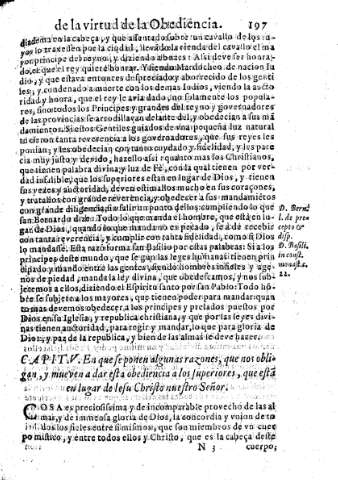 de la virtud de la Obediēcia. 197
diadema en la cabeça, y que assentado sobre un cavallo de los su-
yos lo traxessen por la ciudad, llevādole la rienda del cavallo el ma
yor principe del reyno, y diziendo a bozes: Assi deve ser honra-
do, el que el rey quiere honrar. Y siendo Mardocheo de nacion Iu
dio, y que estava entonces despreciado, y aborrecido de los genti
les, y condenado a muerte con los demas Indios, viendo la aucto
ridad y honra, que el rey le avia dado, no solamente los popula-
res, sino todos los Principes y grandes del reyno y governadores
de las provincias se arrodillavan delante del, y obedecian a sus mā
damientos. Si estos Gentiles guiados de una pequeña luz natural
tuvieron tanta reverencia a los governadores, que sus reyes les
ponian; y les obedecian con tanto cuydado y fidelidad, y les pare
cia muy justo y devido, hazello assi: quanto mas los Christianos,
que tienen palabra divina, y luz de Fè, con la qual tienen por ver-
dad infalible, que los superiores estan en lugar de Dios, y tienen
sus vezes y auctoridad, deven estimallos mucho en sus coraçones,
y tratallos con grande reverencia, y obedecer a sus mandamiētos
con grande diligencia, sin salir un punto dellos, cumpliendo lo que
san Bernardo dize: Todo lo que manda el hombre, que està en lu-
gar de Dios, quando lo que manda no es pecado, se à de recebir
con tanta reverencia, y cumplir con tanta fidelidad, como si Dios
lo mandasse. Esta razō forma san Basilio por estas palabras: Si a los
principes deste mundo, que segun las leyes humanas tienen prin
cipado y mando entre las gentes, siendo hombres infieles y age-
nos de piedad, manda la ley divina, que obedescamos, y nos sub-
jetemos a ellos, diziendo el Espiritu santo por san Pablo: Todo hō-
bre se subjete a los mayores, que tienen poder para mandar: quan
to mas devemos obedecer a los principes y prelados puestos por
Dios en su Iglesia, y republica christiana, y que por las leyes divi-
nas tienen auctoridad, para regir y mandar, lo que para gloria de
Dios, y paz de la republica, y bien de las almas se deve hazer.
D. Bernā
l. de prae
cepto &
disp.
D. Basili.
in const.
monast. c.
22.
CAPIT. V. En que se ponen algunas razones, que nos obli-
gan, y mueven a dar esta obediencia a los superiores, que està
en lugar de Iesu Christo nuestro Señor.
COSA es preciosissima y de incomparable provecho de las al
mas, y de immensa gloria de Dios, la concordia y union de to
dos los fieles entre si mismos, que son miembros de un cuer
po mistico, y entre todos ellos y Christo, que es la cabeça deste
N 3 cuerpo;